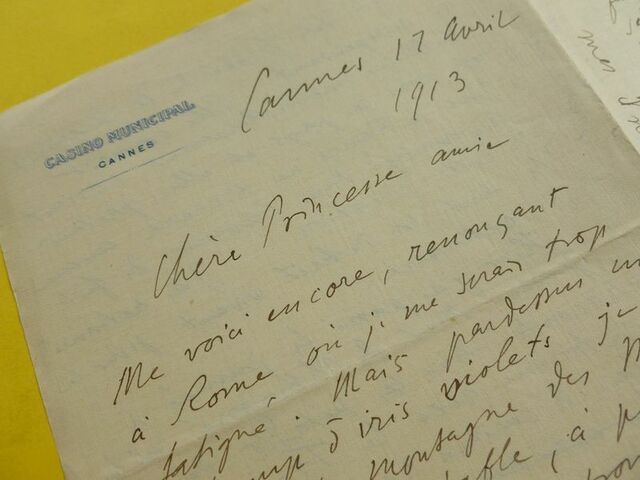 CASINO MUNICIPAL
CANNES
Cannes 17 avril
1913
Chère Princesse amie
Me voici encore, renonçant
à Rome où je me serais trop
fatigué. Mais pardessus un
d'iris violets je
montagne des M
, à p
mes